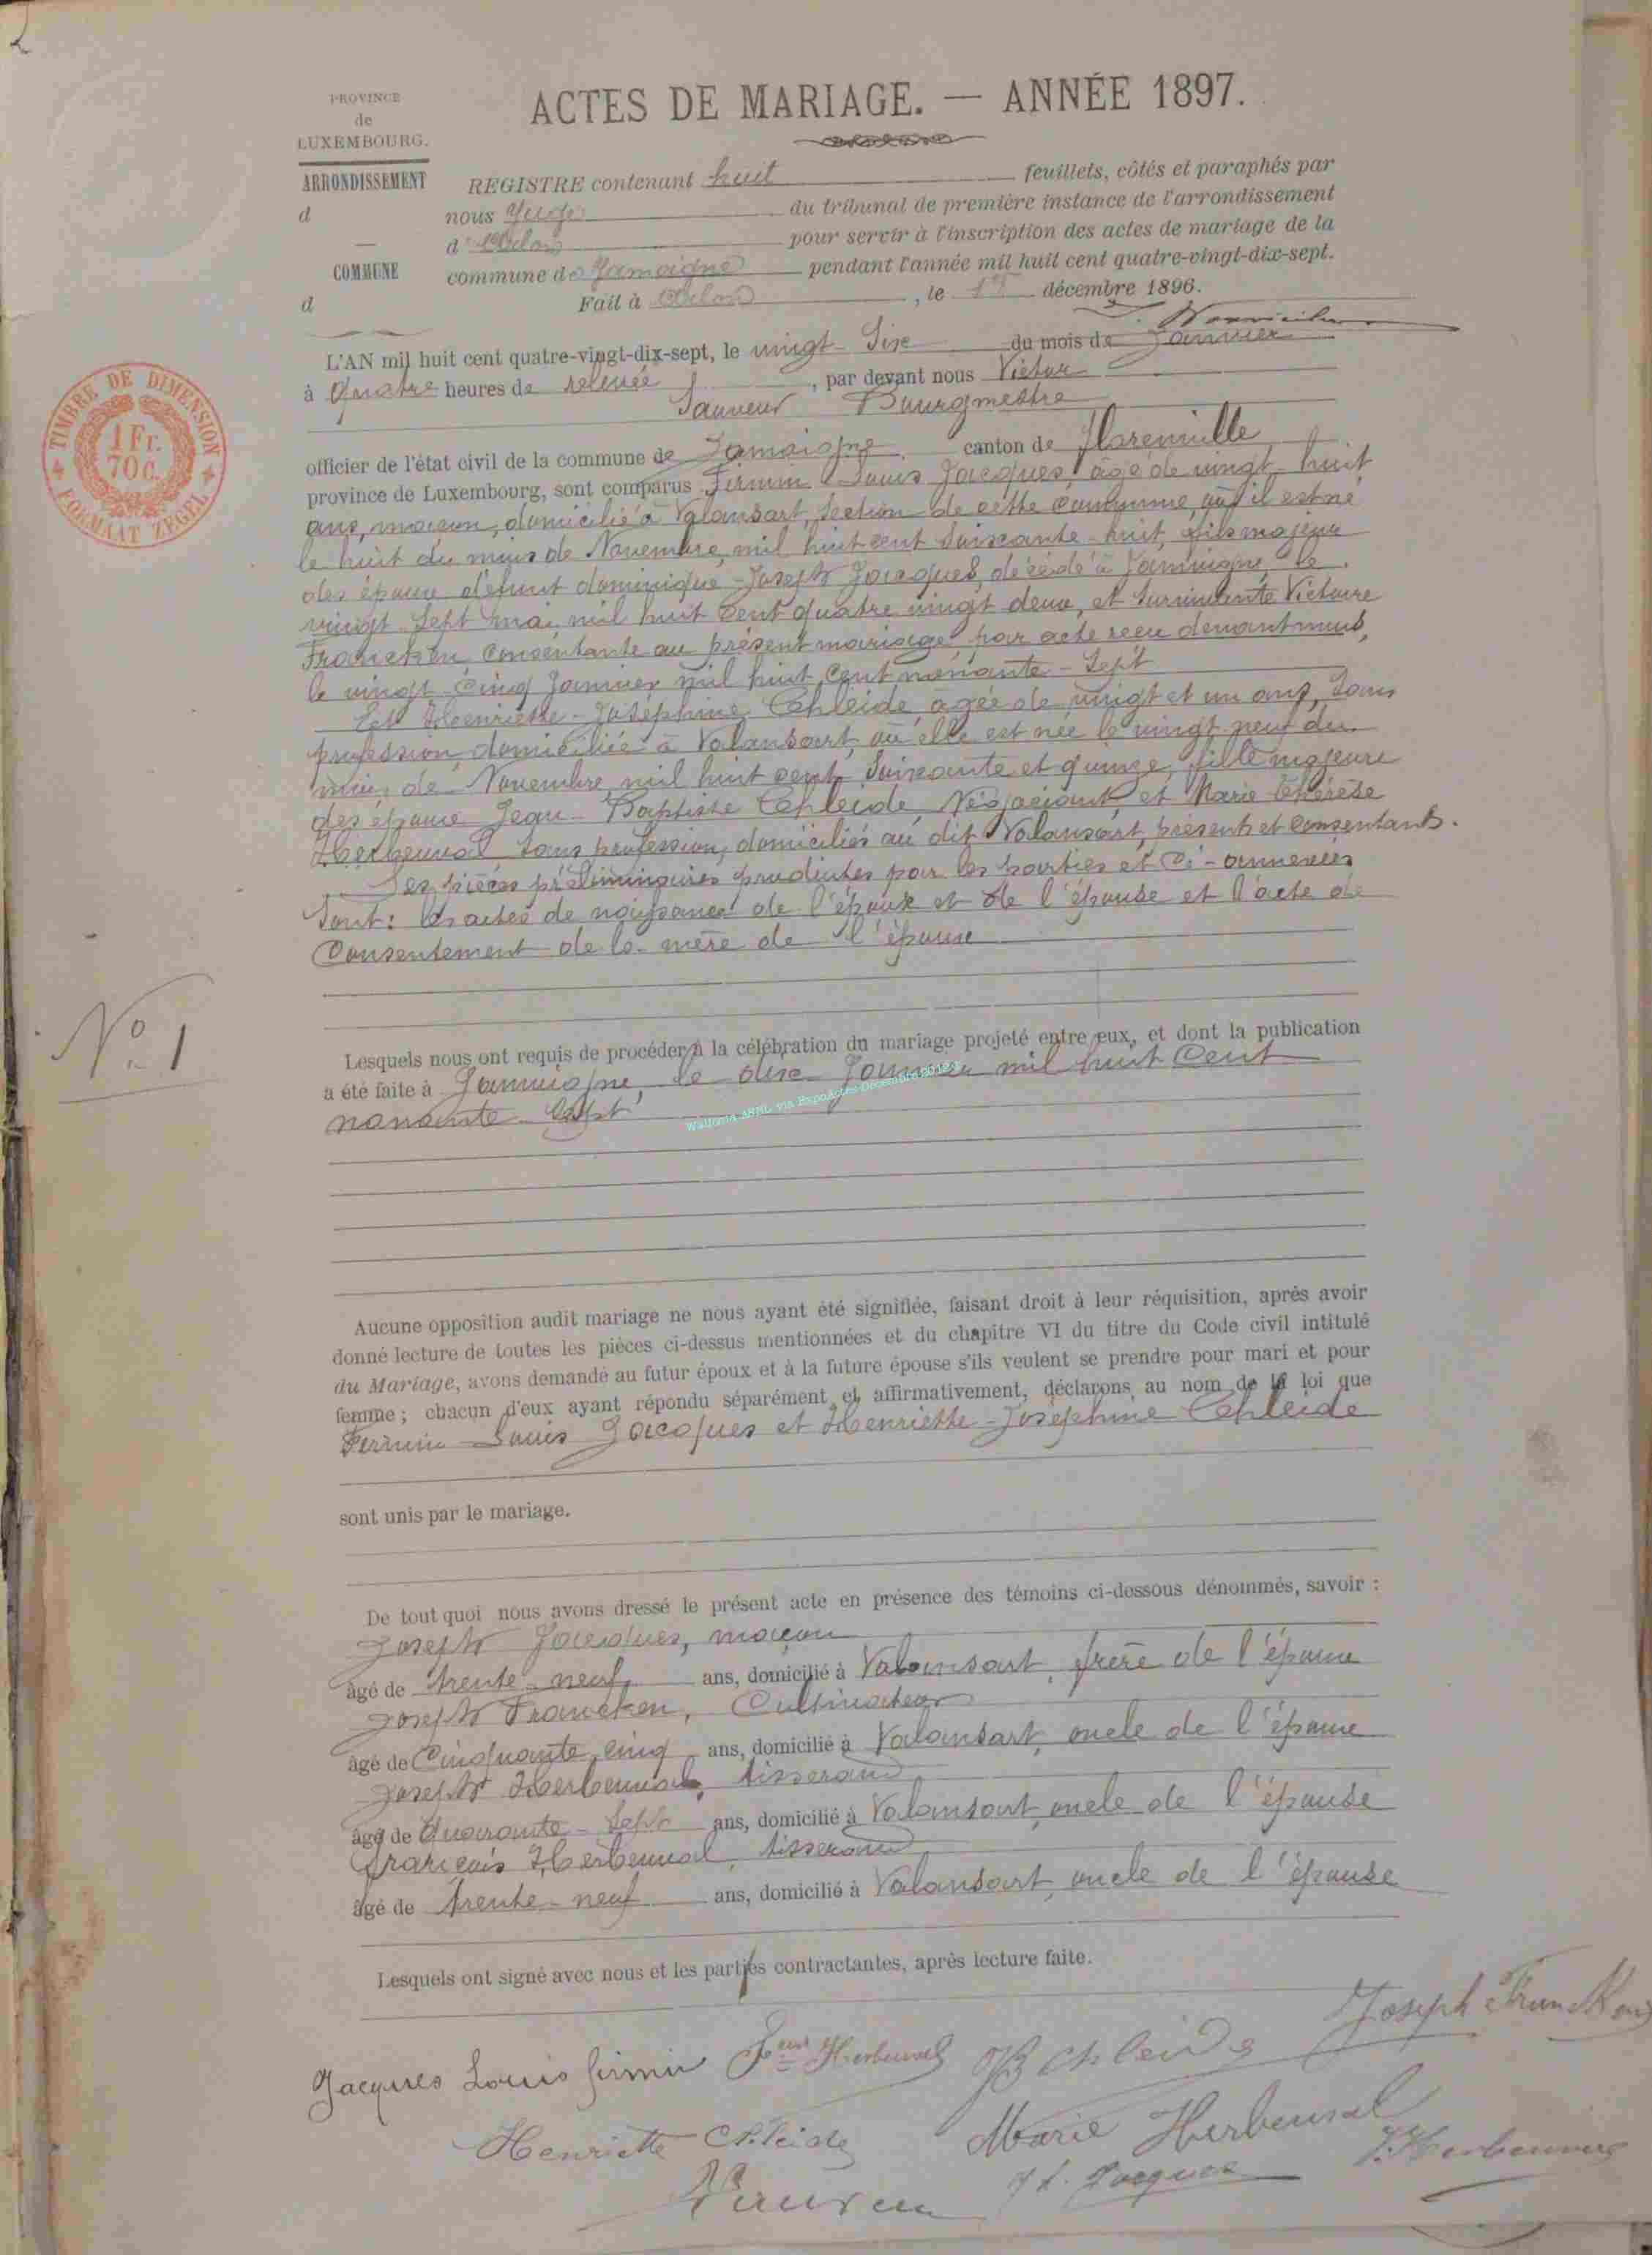 2
PROVINCE
de
LUXEMBOURG.
ARRONDISSEMENT
d
COMMUNE
d
ACTES DE MARIAGE. — ANNÉE 1897.
REGISTRE contenant huit feuillets, côtés et paraphés par
nous Juge du tribunal de première instance de l'arrondissement
d'Arlon pour servir à l'inscription des actes de mariage de la
commune de Jamoigne pendant l'année mil huit cent quatre-vingt-dix-sept.
Fait à Arlon, le décembre 1896.
L'AN mil huit cent quatre-vingt-dix-sept, le vingt-Six du mois de Janvier
à Quatre heures de relevée, par devant nous Victor
Sauveur Bourgmestre
officier de l'état civil de la commune de Jamoigne canton de Florenville
province de Luxembourg, sont comparus Firmin Louis Jacques âgé de vingt-huit
ans, maçon, domicilié à Valansart, Section de cette Commune, où il est né
le huit du mois de Novembre mil huit cent Soixante-huit, fils majeur
des époux défunt dominique-Joseph Jacques, décédé à Jamoigne, le
vingt Sept mai mil huit Cent quatre vingt deux, et Survivante Victoire
Francken, Consentante au présent mariage par acte reçu devant nous,
le vingt-Cinq Janvier mil huit Cent nonante-Sept
Et Henriette-Joséphine Chleide, agée de vingt et un ans, Sans
profession, domiciliée à Valansart, où elle est née le vingt-neuf du
mois de Novembre mil huit cent Soixante et quinze, fille majeure
des époux Jean-Baptiste Chleide, Négociant, et Marie Thérèse
Herbeuval, Sans profession, domiciliés au dit Valansart, présents et Consentants.
Les pièces préliminaires produites par les parties et Ci-annexées
Sont: les actes de naissance de l'époux et de l'épouse et l'acte de
Consentement de la mère de l'époux
No 1
Lesquels nous ont requis de procéder à la célébration du mariage projeté entre eux, et dont la publication
a été faite à Jamoigne, le dix Janvier mil huit Cent
nonante Sept
Wallonia ASBL via ExpoActes Décembre 2012
Aucune opposition audit mariage ne nous ayant été signifiée, faisant droit à leur réquisition, après avoir
donné lecture de toutes les pièces ci-dessus mentionnées et du chapitre VI du titre du Code civil intitulé
du Mariage, avons demandé au futur époux et à la future épouse s'ils veulent se prendre pour mari et pour
femme; chacun d'eux ayant répondu séparément et affirmativement, déclarons au nom de la loi que
Firmin-Louis Jacques et Henriette-Joséphine Chleide
sont unis par le mariage.
De tout quoi nous avons dressé le présent acte en présence des témoins ci-dessous dénommés, savoir :
Joseph Jacques, maçon
âgé de trente-neuf ans, domicilié à Valansart, frère de l'époux
Joseph Francken, Cultivateur
âgé de Cinquante cinq ans, domicilié à Valansart, oncle de l'époux
Joseph Herbeuval, tisserand
âgé de Quarante-Sept ans, domicilié à Valansart, oncle de l'épouse
François Herbeuval, tisserand
âgé de trente-neuf ans, domicilié à Valansart, oncle de l'épouse
Lesquels ont signé avec nous et les parties contractantes, après lecture faite.
Jacques Louis firmin Fçois Herbeuval JB Chleide Joseph Francken
Henriette Chleide Marie Herbeuval J. Herbeuval
Sauveur Jh. Jacques
TIMBRE DE DIMENSION
1 Fr.
70 C.
FORMAAT ZEGEL